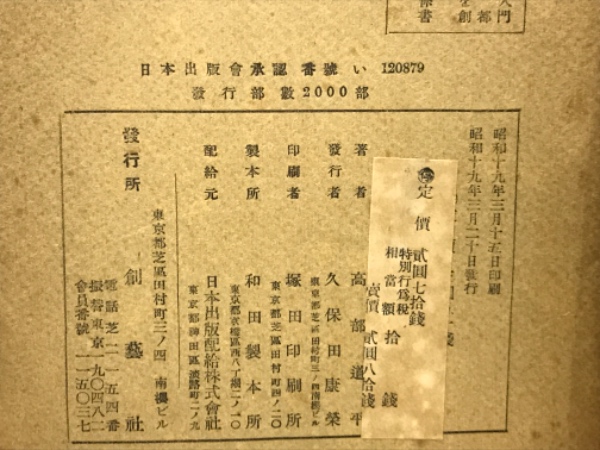 日本出版會承認番號い 120879
發行部數2000部
昭和十九年三月十五日印刷
昭和十九年三月二十日發行
定價 貳圓七拾錢
特別行爲稅
相當額 拾錢
賣價 貳圓八拾錢
著者 高部道平
發行者 久保田康榮
東京都芝區田村町三ノ四南櫻ビル
印刷者 塚田印刷所
東京都芝區田村町四ノ二〇
製本所 和田製本所
東京都京橋區西八丁堀二ノ一〇
配給元 日本出版配給株式會社
東京都神田區淡路町二ノ九
發行所 創藝社
東京都芝區田村町三ノ四 南櫻ビル
電話芝二一五四番
振替東京一九〇四八二
會員番號一一五〇三七